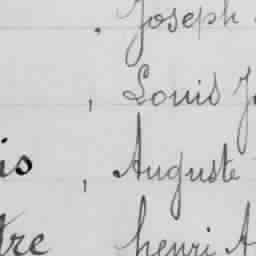 . Joseph
, Louis J
is , Auguste
tre henri A